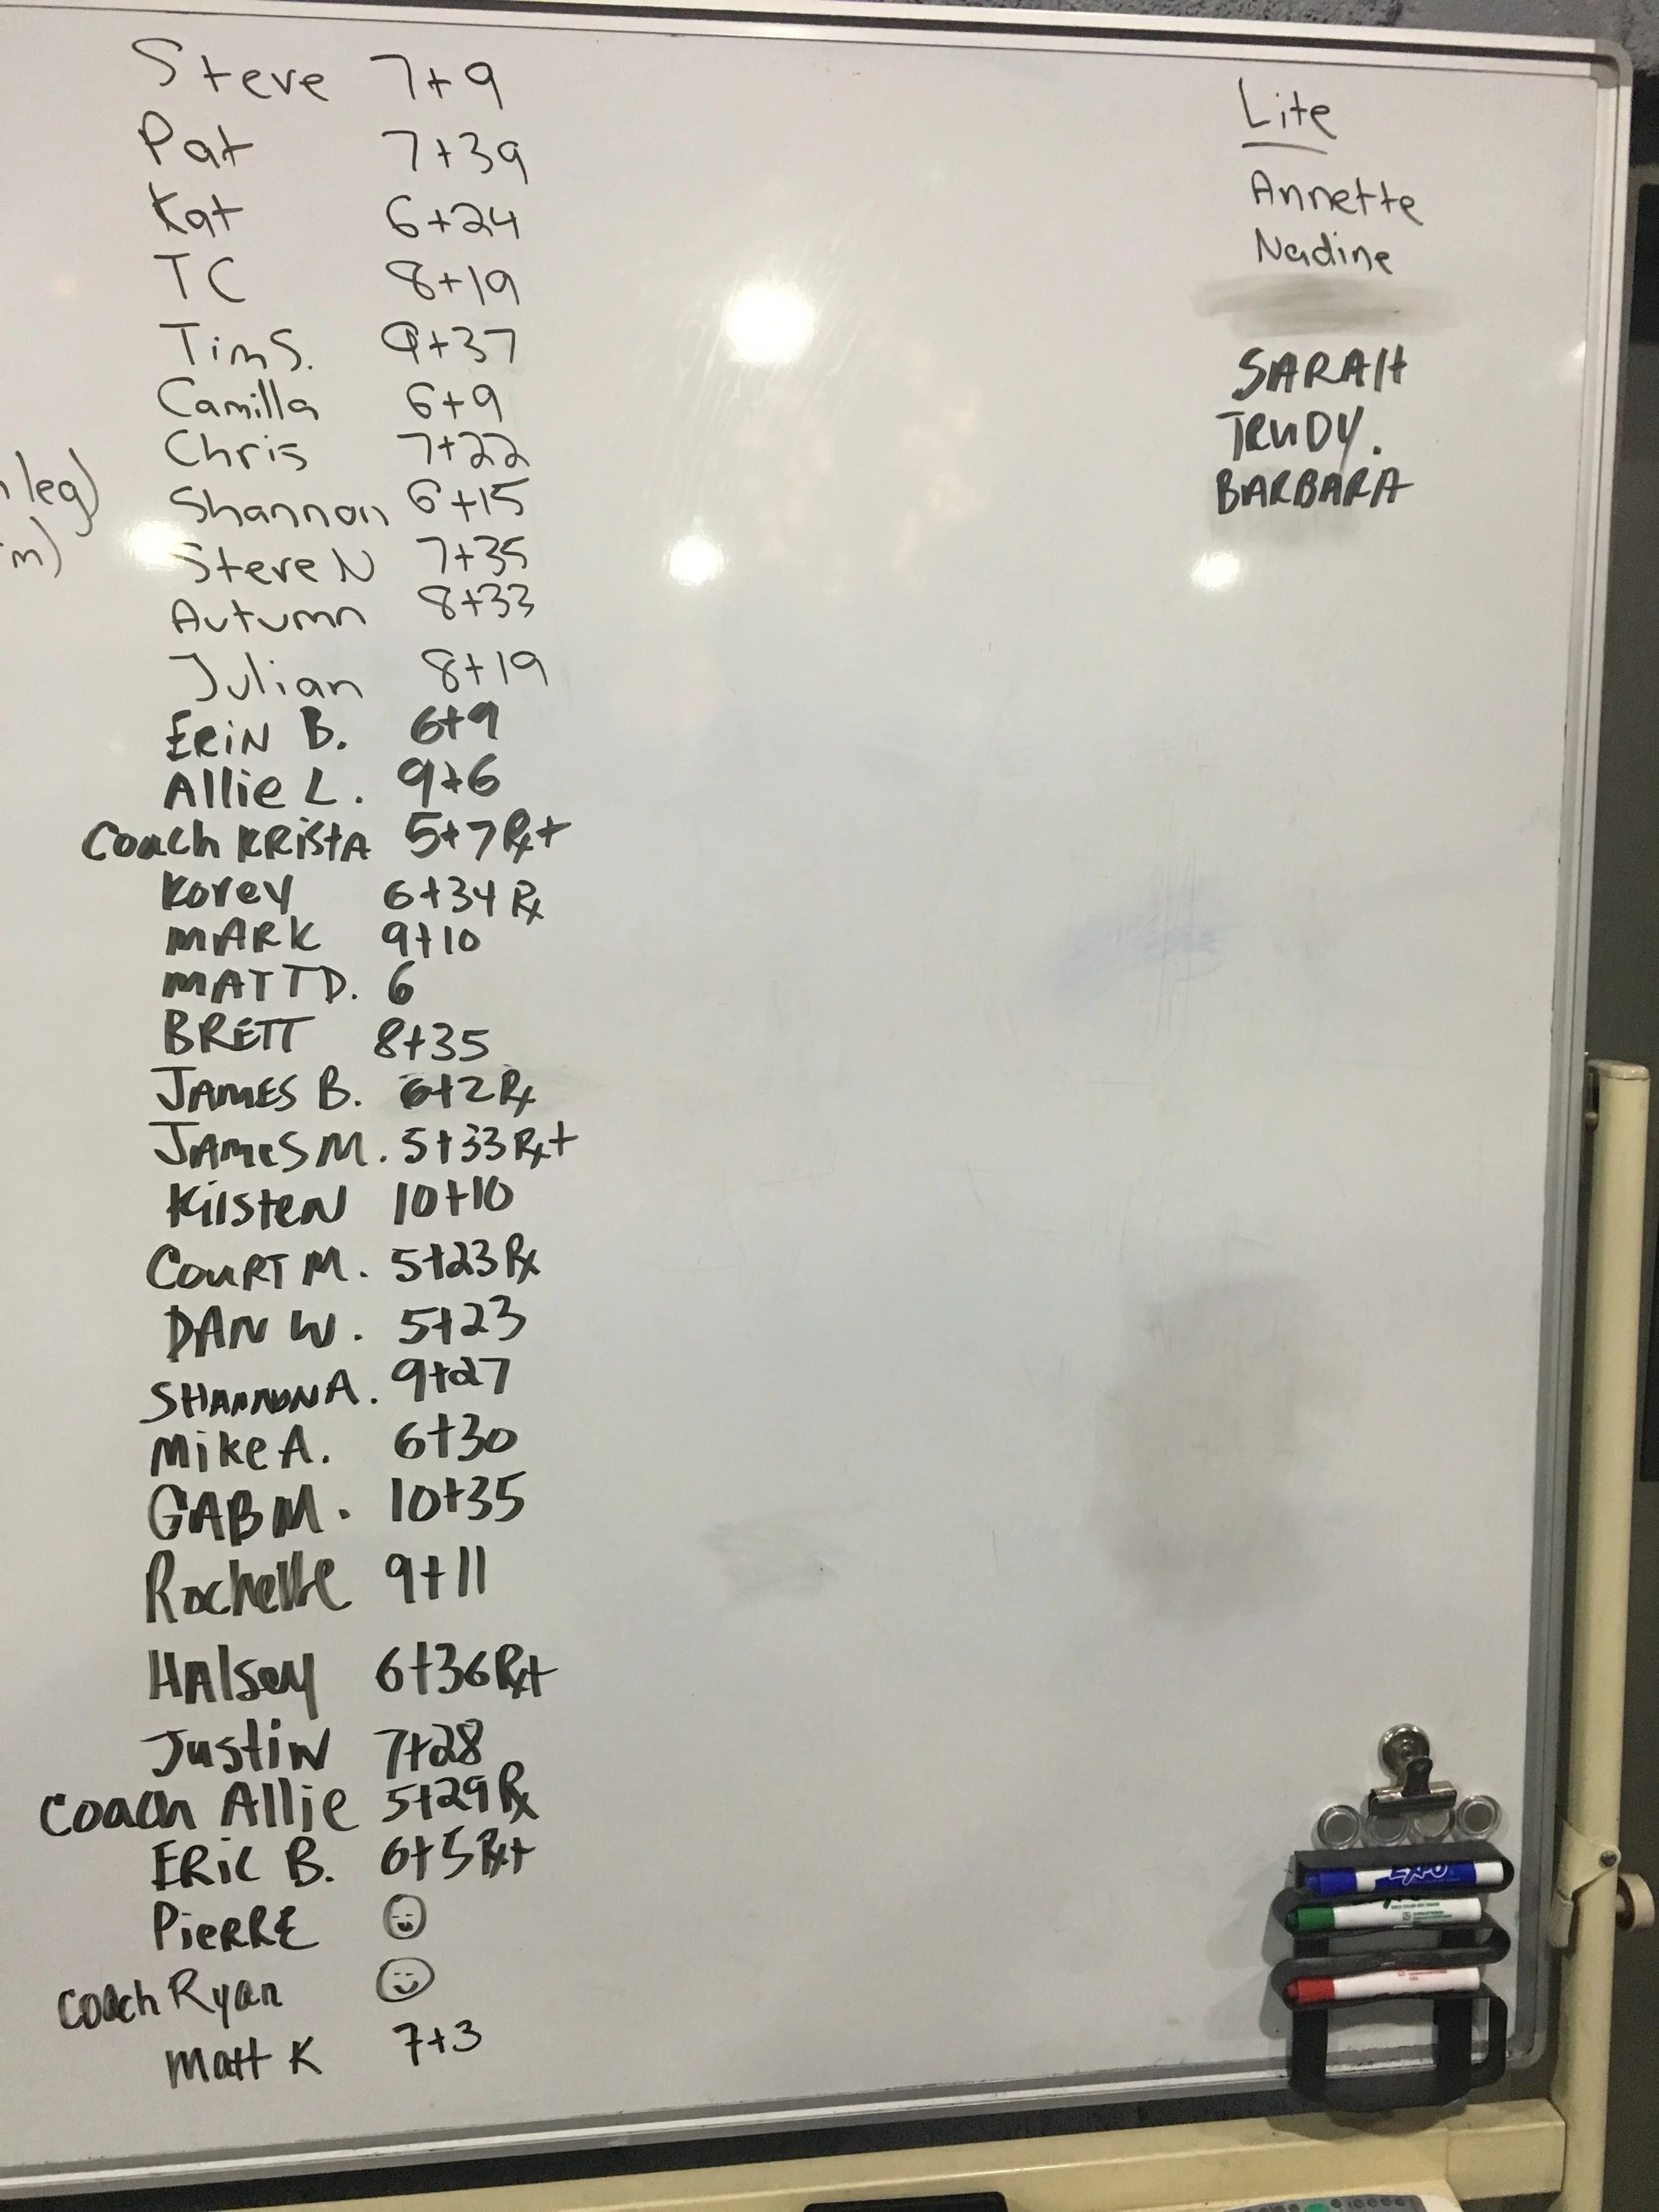 Steve 7+9
Pat 7+39
Kat 6+24
TC 8+19
Tim S. 9+37
Camilla 6+9
Chris 7+22
leg)
Shannon 6+15
m)
Steve N 7+35
Autumn 8+33
Julian 8+19
ERiN B. 6+9
Allie L. 9+6
Coach KRistA 5+7 Rx+
Korey 6+34 Rx
MARK 9+10
MATT D. 6
BRETT 8+35
JAMES B. 6+2 Rx
JAMES M. 5+33 Rx+
KiisteN 10+10
COURT M. 5+23 Rx
DAN W. 5+23
SHANNON A. 9+27
Mike A. 6+30
GAB M. 10+35
Rochelle 9+11
HAlsey 6+36 Rx+
JustiN 7+28
Coach Allie 5+29 Rx
ERiC B. 6+5 Rx+
PieRRE
Coach Ryan
Matt K 7+3
Lite
Annette
Nadine
SARAH
TRUDY.
BARBARA
EXPO